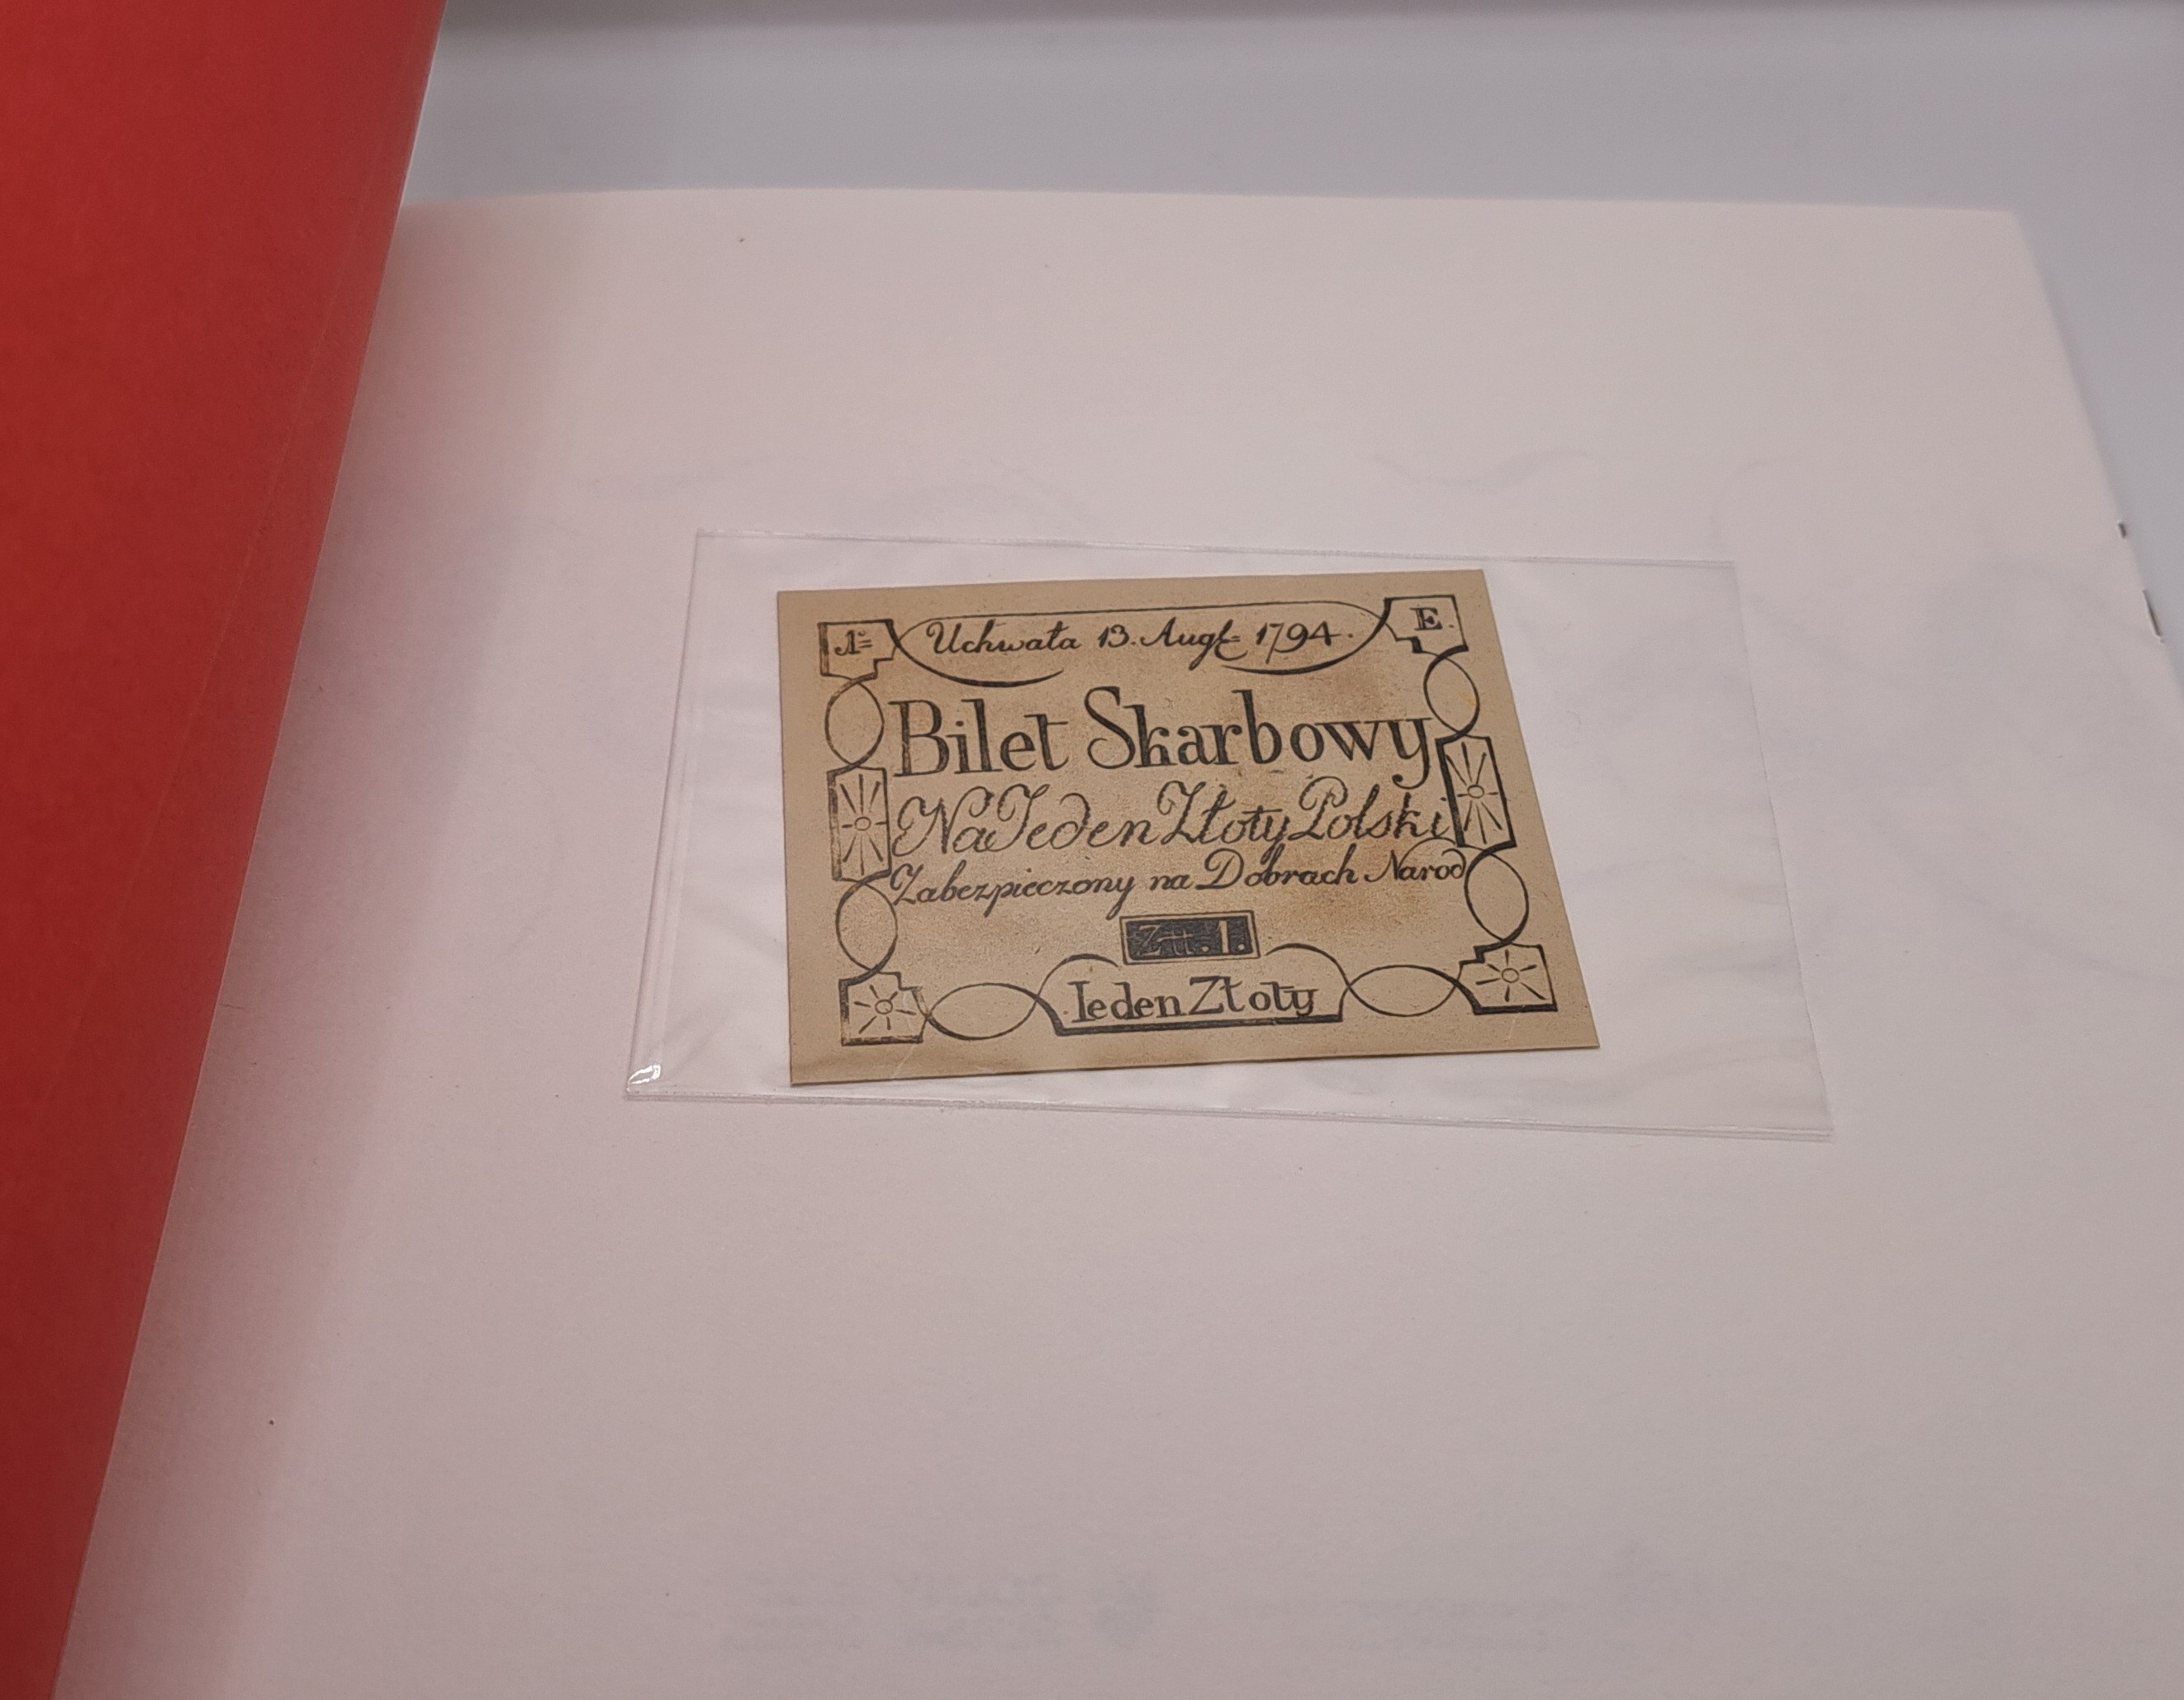 1= Uchwała 13. Augt= 1794. E.
Bilet Skarbowy
Na Ieden Złoty Polski
Zabezpieczony na Dobrach Narod
Zł. 1.
Ieden Złoty